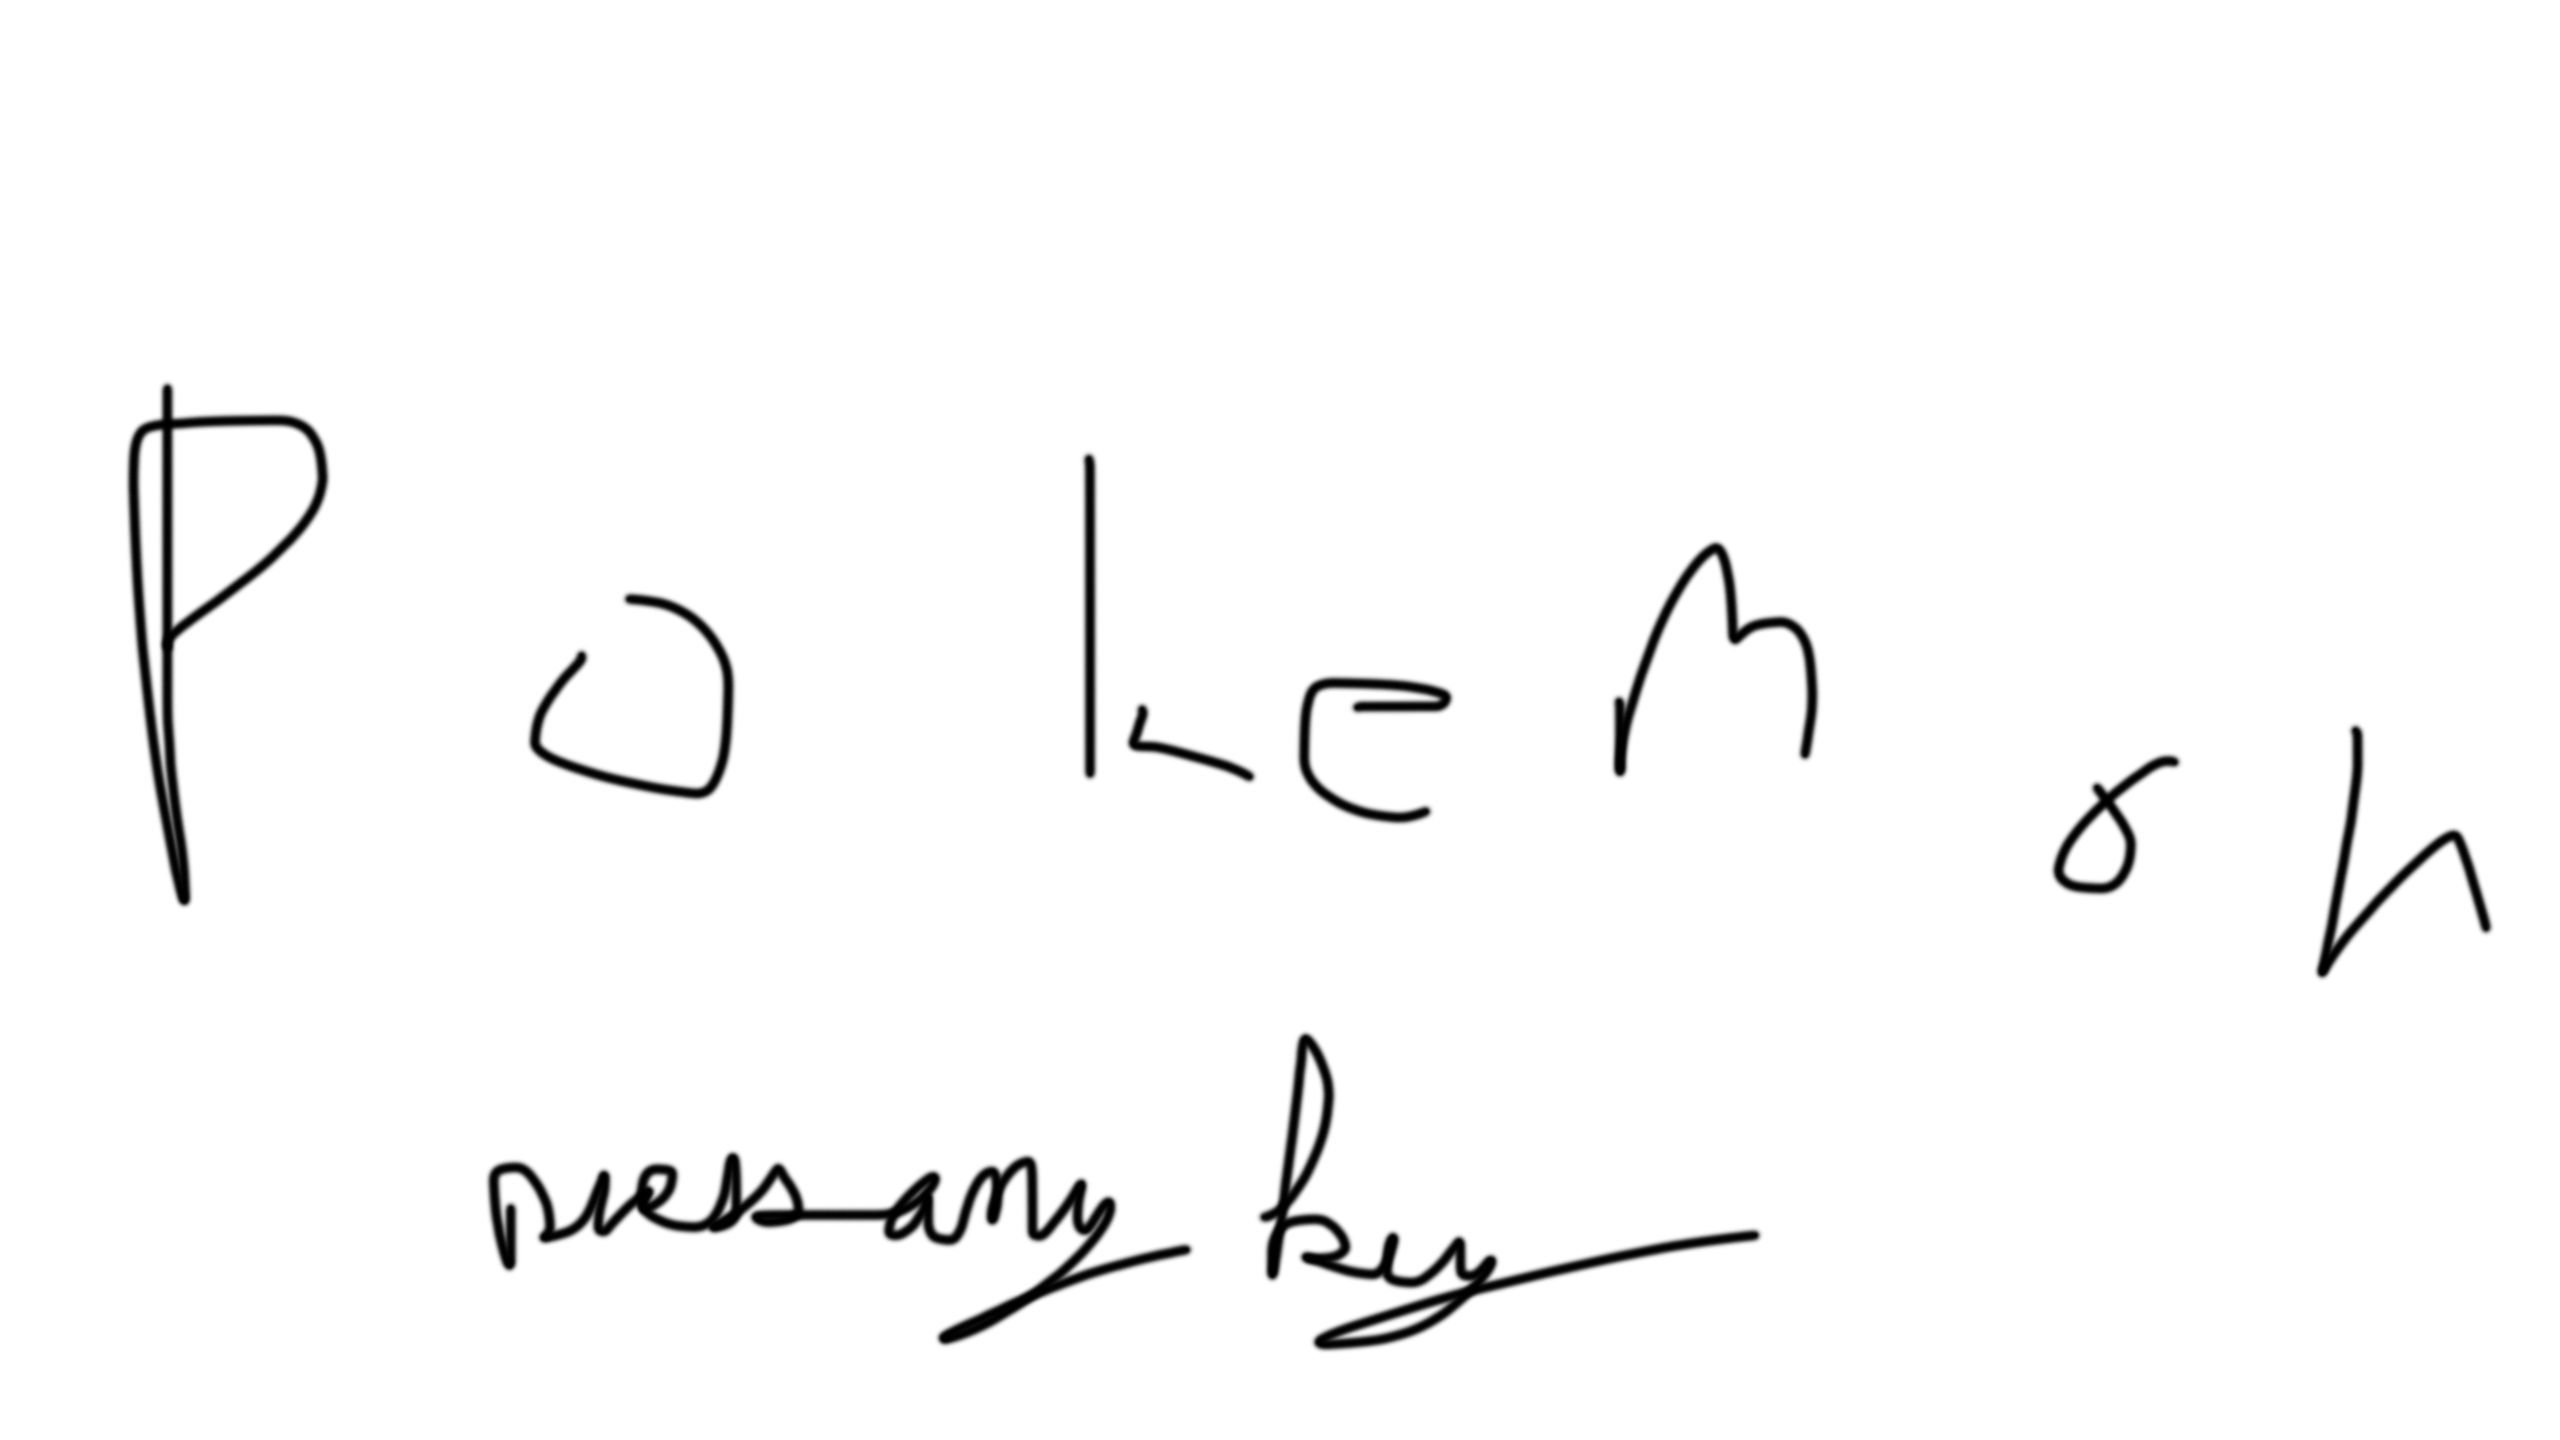 Pokemon
press any key